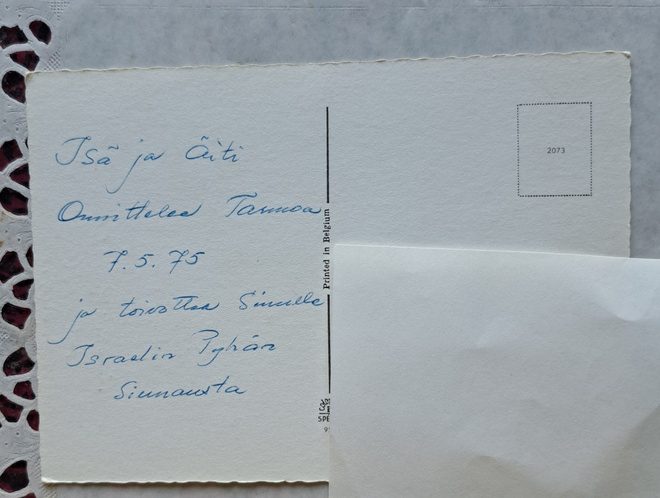 Isä ja Äiti
Onnittelee Tarmoa
7.5.75
ja toivottaa Sinulle
Israelin Pyhän
Siunausta
Printed in Belgium
2073